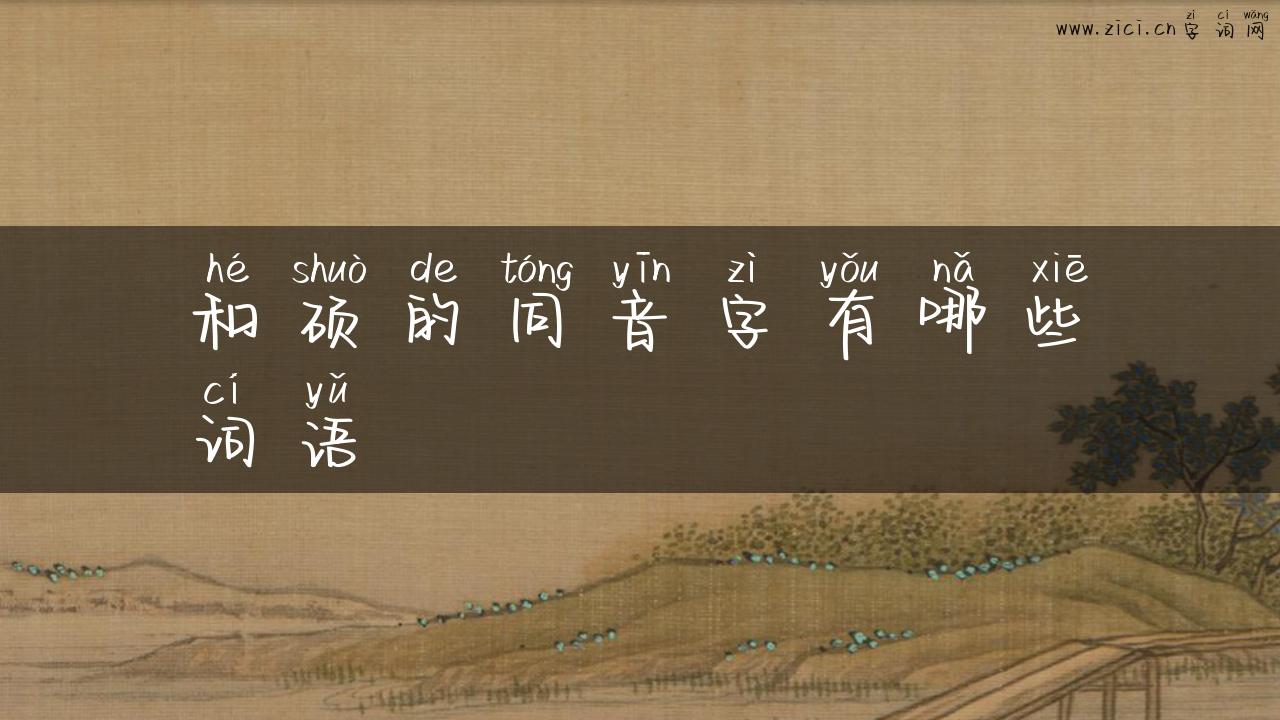 zì cí wǎng
www.zici.cn 字词网
hé shuò de tóng yīn zì yǒu nǎ xiē
和硕的同音字有哪些
cí yǔ
词语